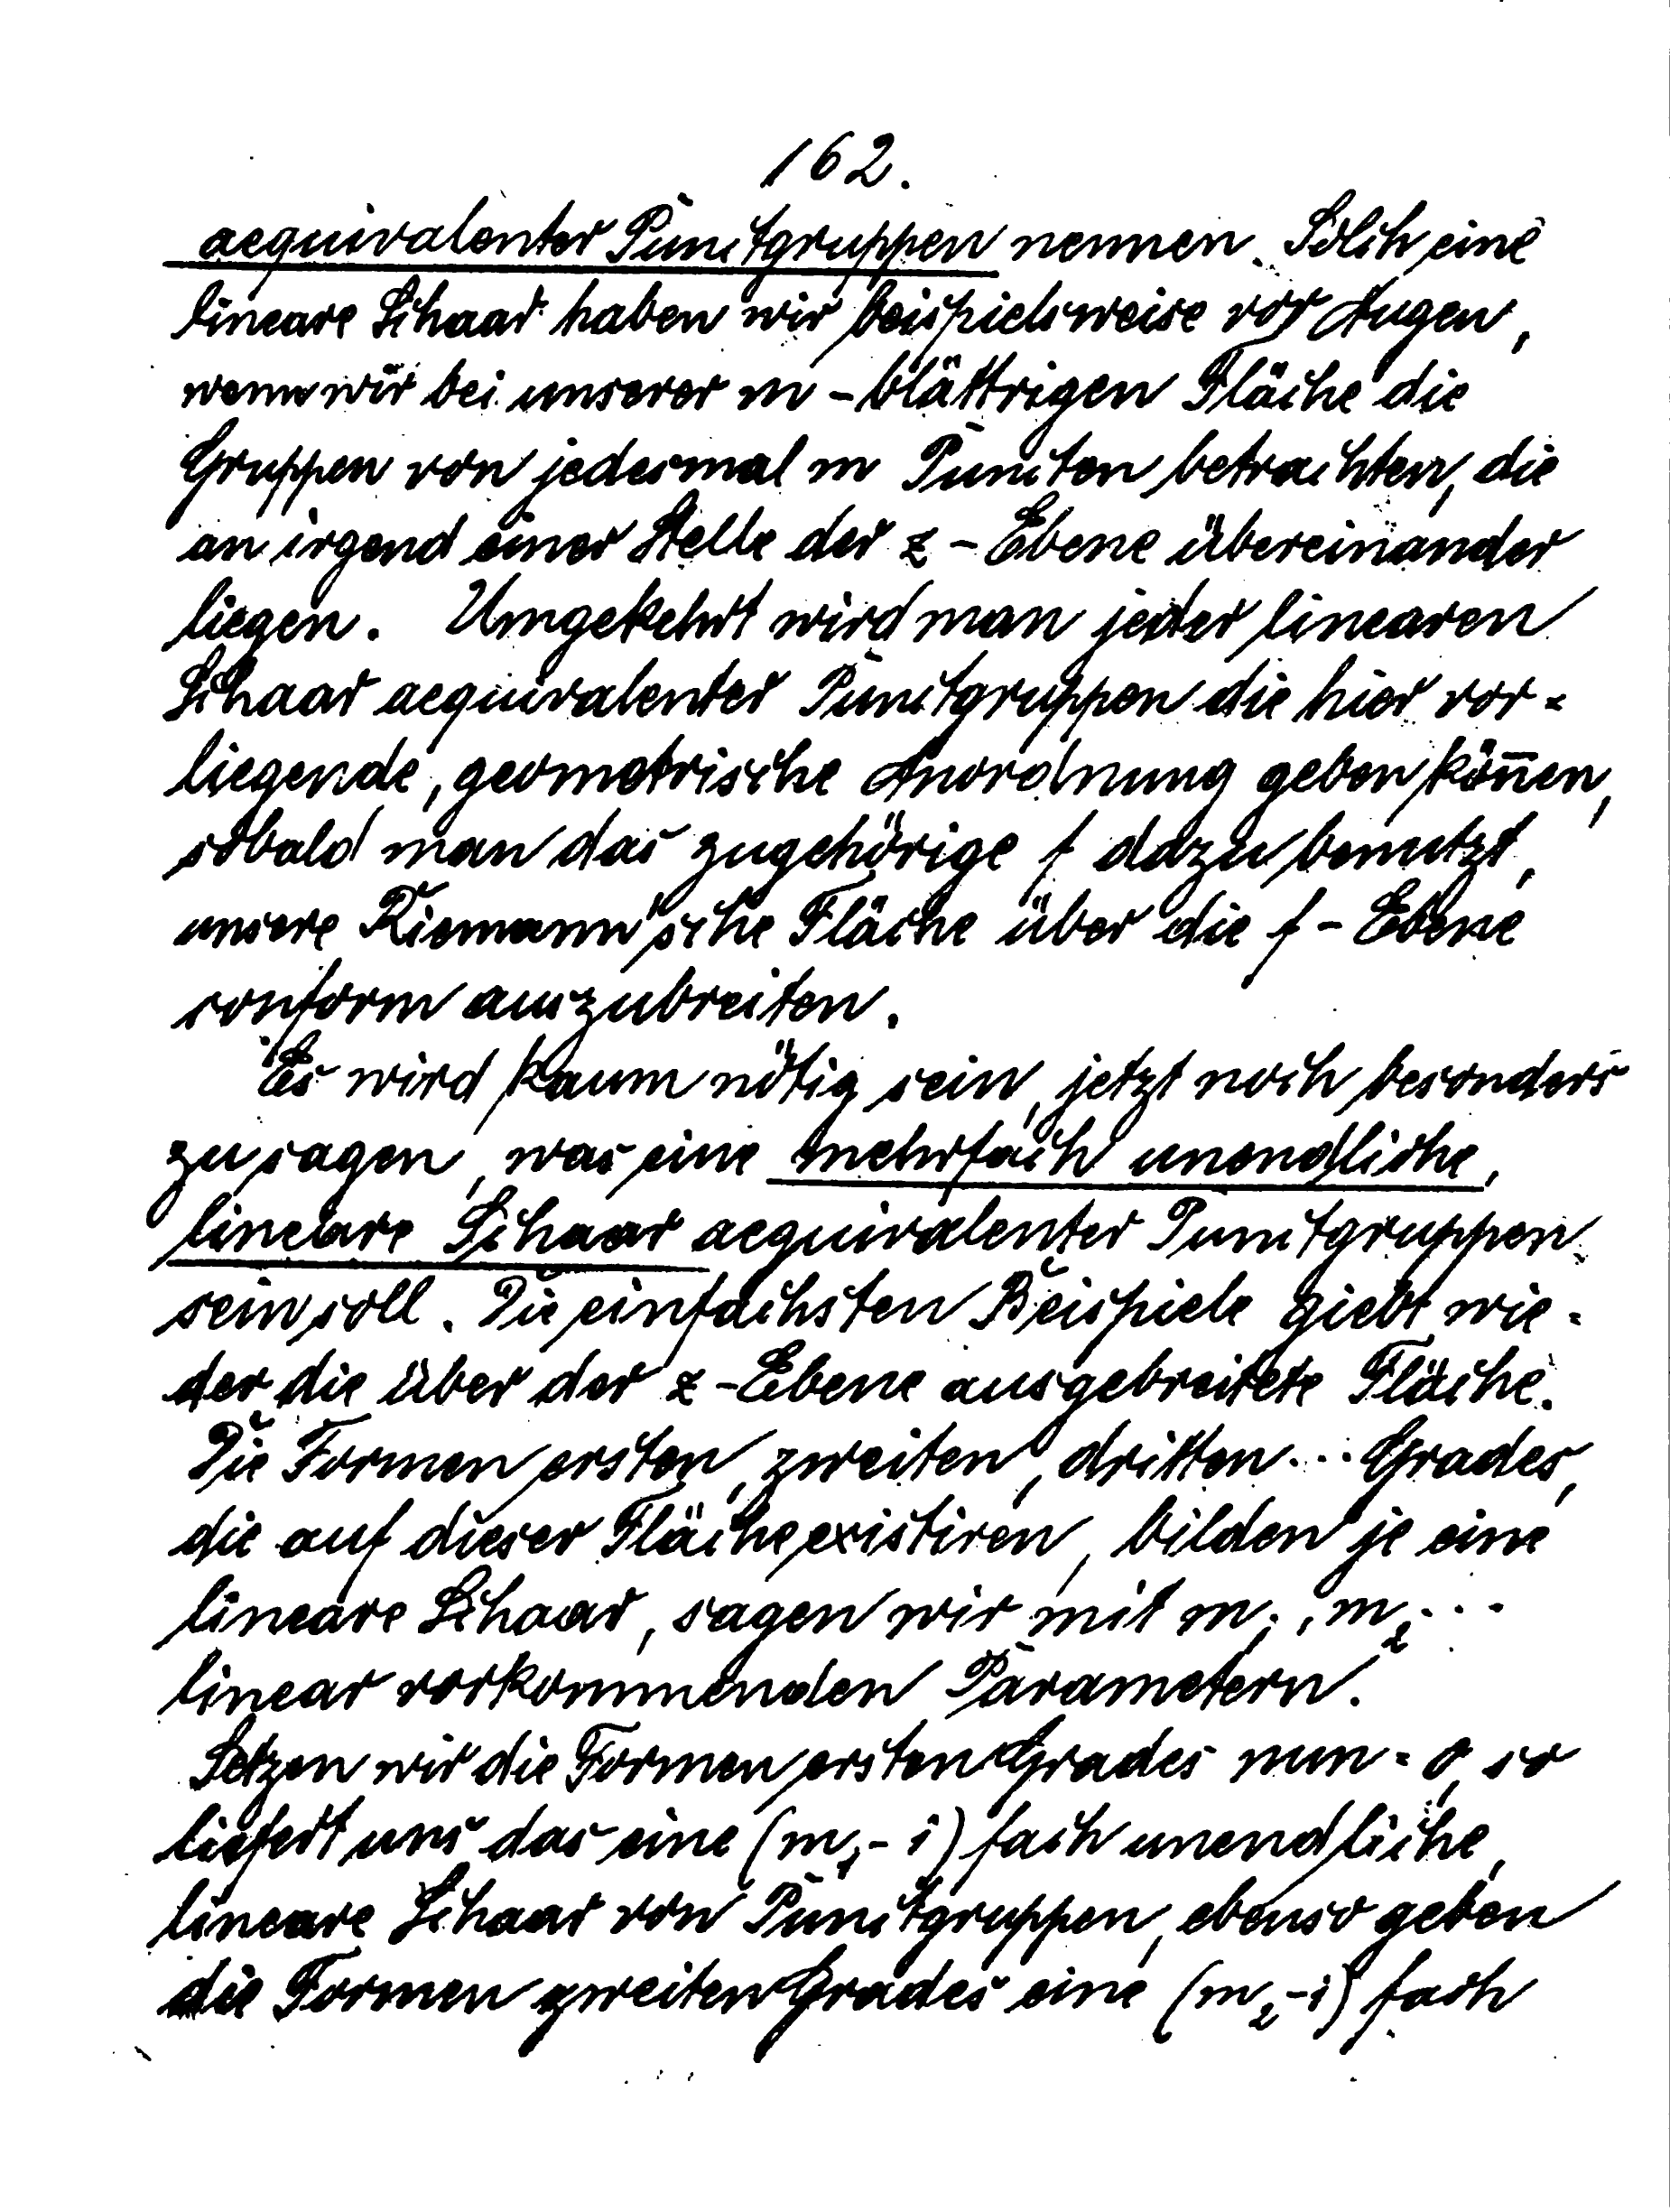 162.
aequivalenter Punctgruppen nennen. Solch eine
lineare Schaar haben wir beispielsweise vor Augen,
wenn wir bei unserer m-blättrigen Fläche die
Gruppen von jedesmal m Puncten betrachten, die
an irgend einer Stelle der z-Ebene übereinander
liegen. Umgekehrt wird man jeder linearen
Schaar aequivalenter Punctgruppen die hier vor=
liegende, geometrische Anordnung geben kön̄en,
sobald man das zugehörige f dazu benutzt,
unsere Riemann'sche Fläche über die f-Ebene
conform auszubreiten.
Es wird kaum nötig sein, jetzt noch besonders
zu sagen, was eine mehrfach unendliche,
lineare Schaar aequivalenter Punctgruppen
sein soll. Die einfachsten Beispiele giebt wie=
der die über der z-Ebene ausgebreitete Fläche.
Die Formen ersten, zweiten, dritten... Grades,
die auf dieser Fläche existiren, bilden je eine
lineare Schaar, sagen wir mit m₁, m₂...
linear vorkommenden Parametern.
Setzen wir die Formen ersten Grades nun = 0, so
liefert uns das eine (m₁-1) fach unendliche,
lineare Schaar von Punctgruppen, ebenso geben
die Formen zweiten Grades eine (m₂-1) fach